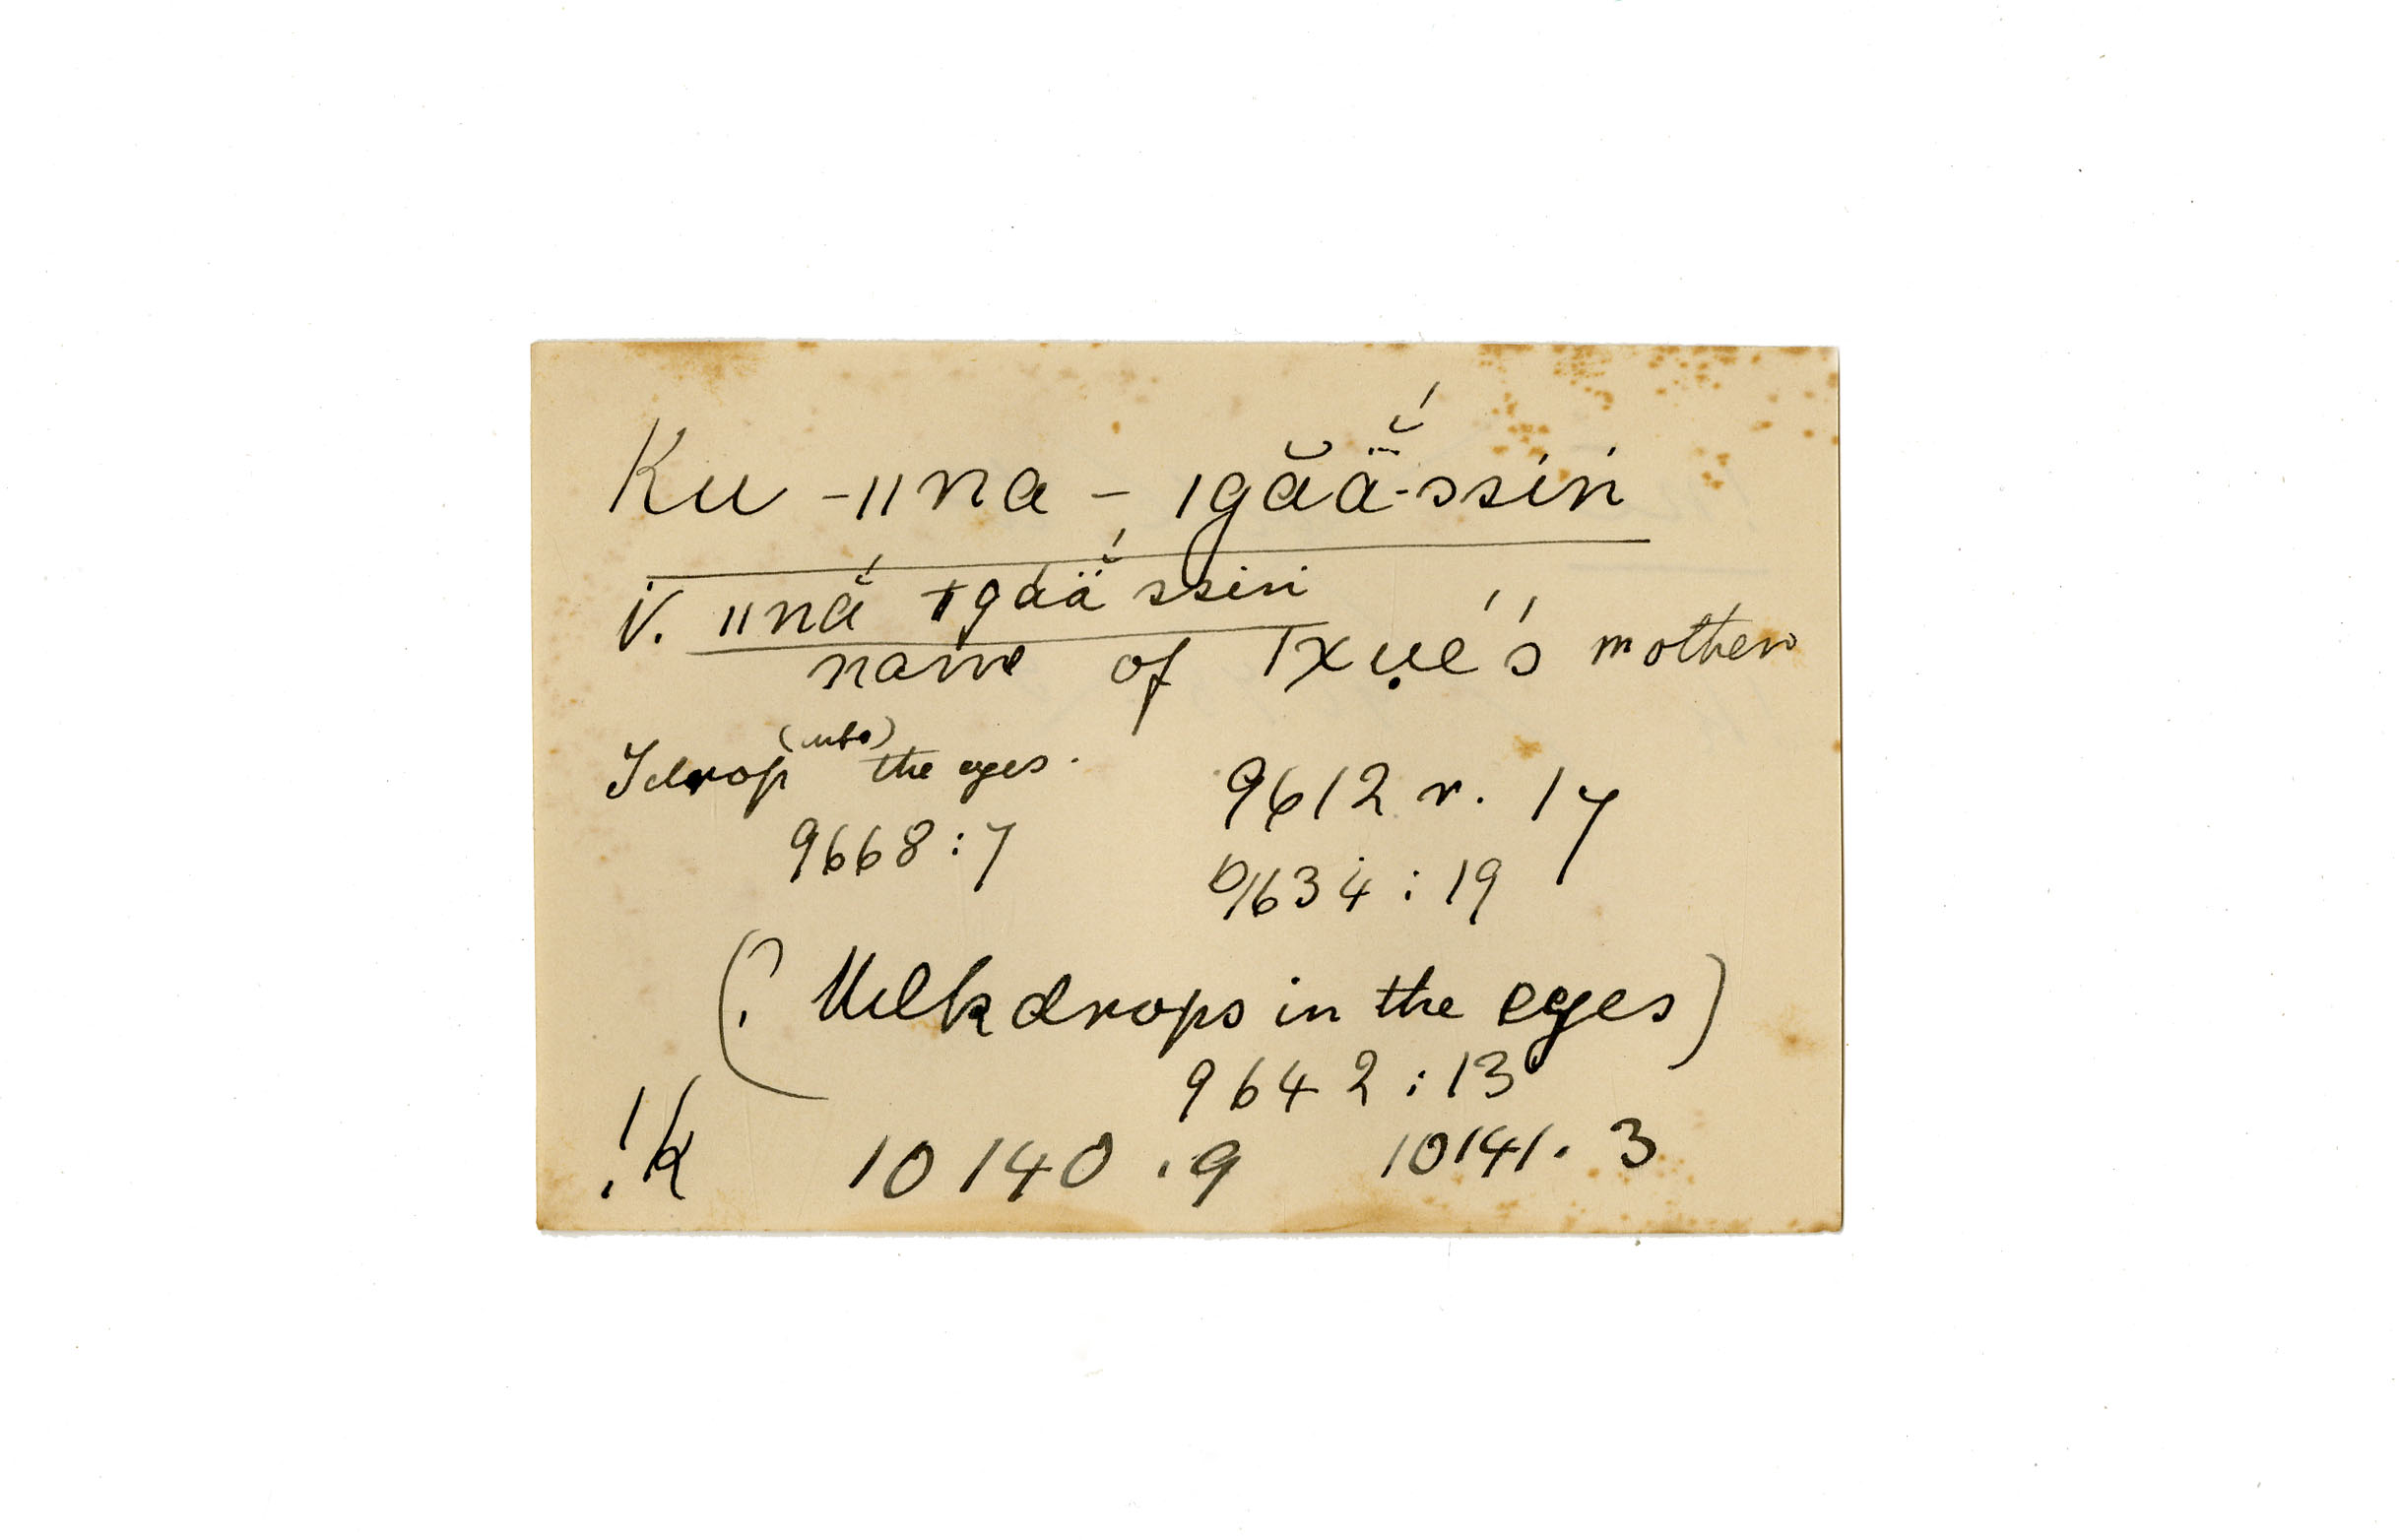 Ku -ǁna - ǀgăä̆́-ssin
v. ǁnắ ǂgaä̆́ ssin
name of ǀxụé's mother
(into)
I drop the eyes.
9612 r. 17
9668:7
634 : 19
(? Milk drops in the eyes)
9642 : 13
!k 10140.9 10141.3